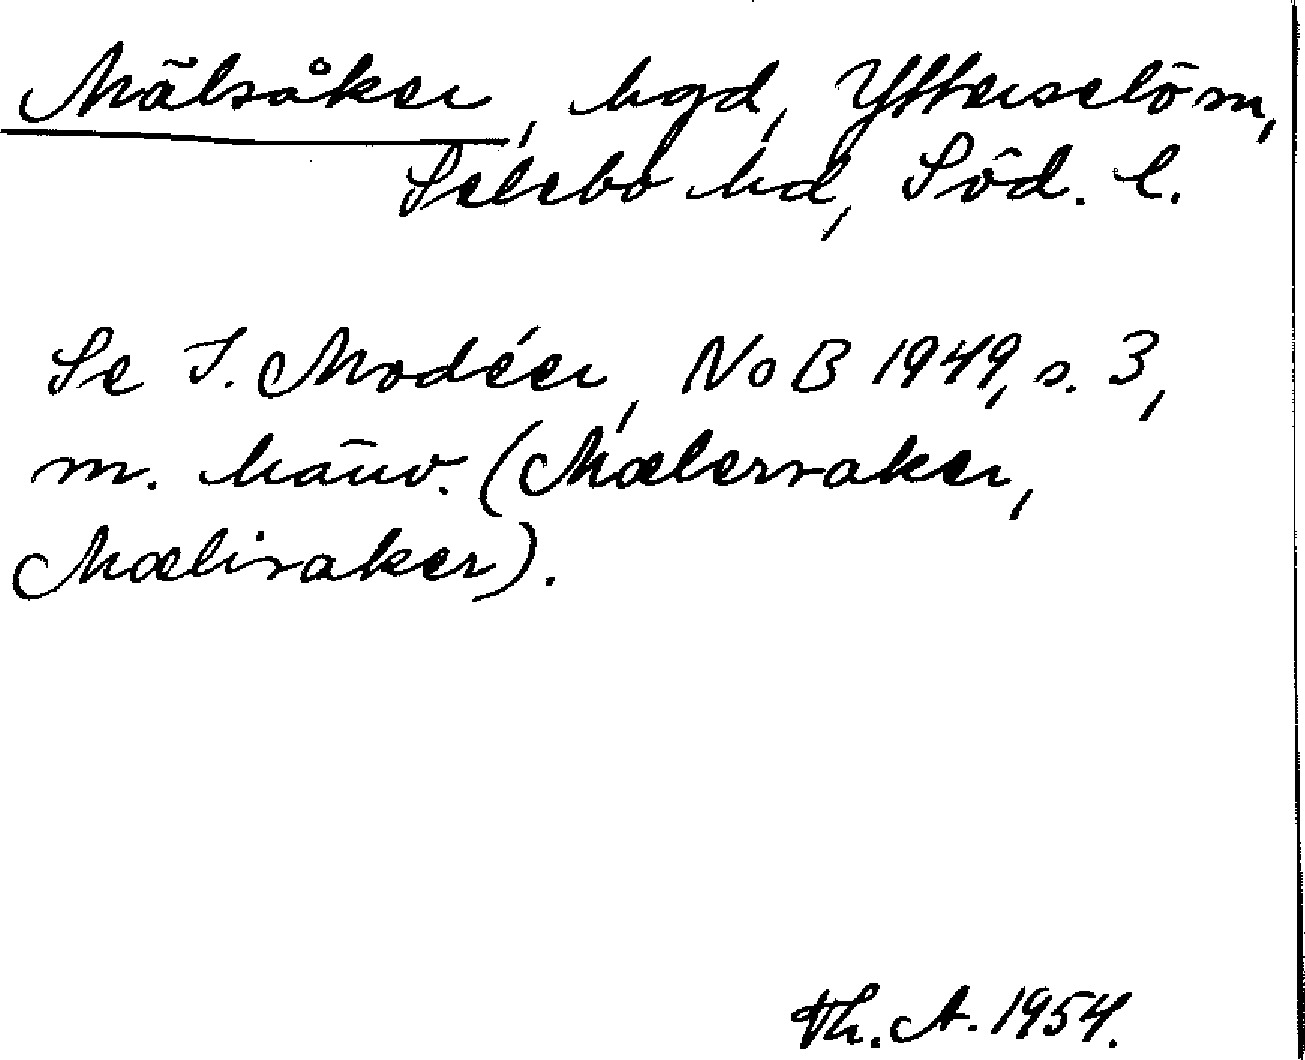 Mälsåker, hgd, Ytterselöm,
Selebo hd, Söd. l.
Se I. Modéer, NoB 1949, s. 3,
m. hänv. (Mælersaker,
Mælisaker).
Th. A. 1954.